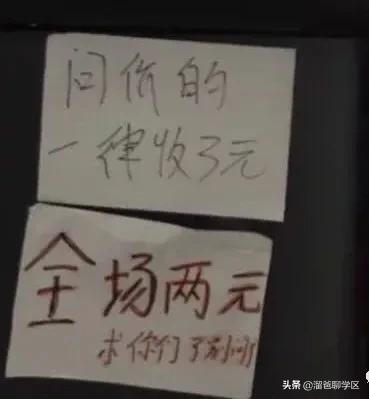 问价的
一律收3元
全场两元
求你们了别问了
头条 @溜爸聊学区